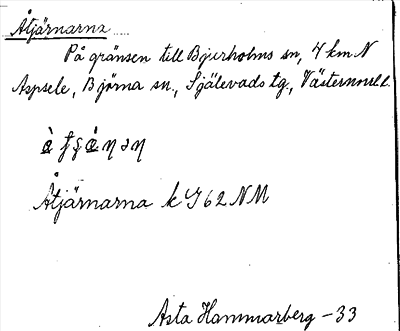 Åtjärnarna
På gränsen till Bjurholms sn, 4 km N
Aspsele, Björna sn., Själevads tg., Västernorrl l.
Åtjärnarna k J 62 NM
Asta Hammarberg - 33